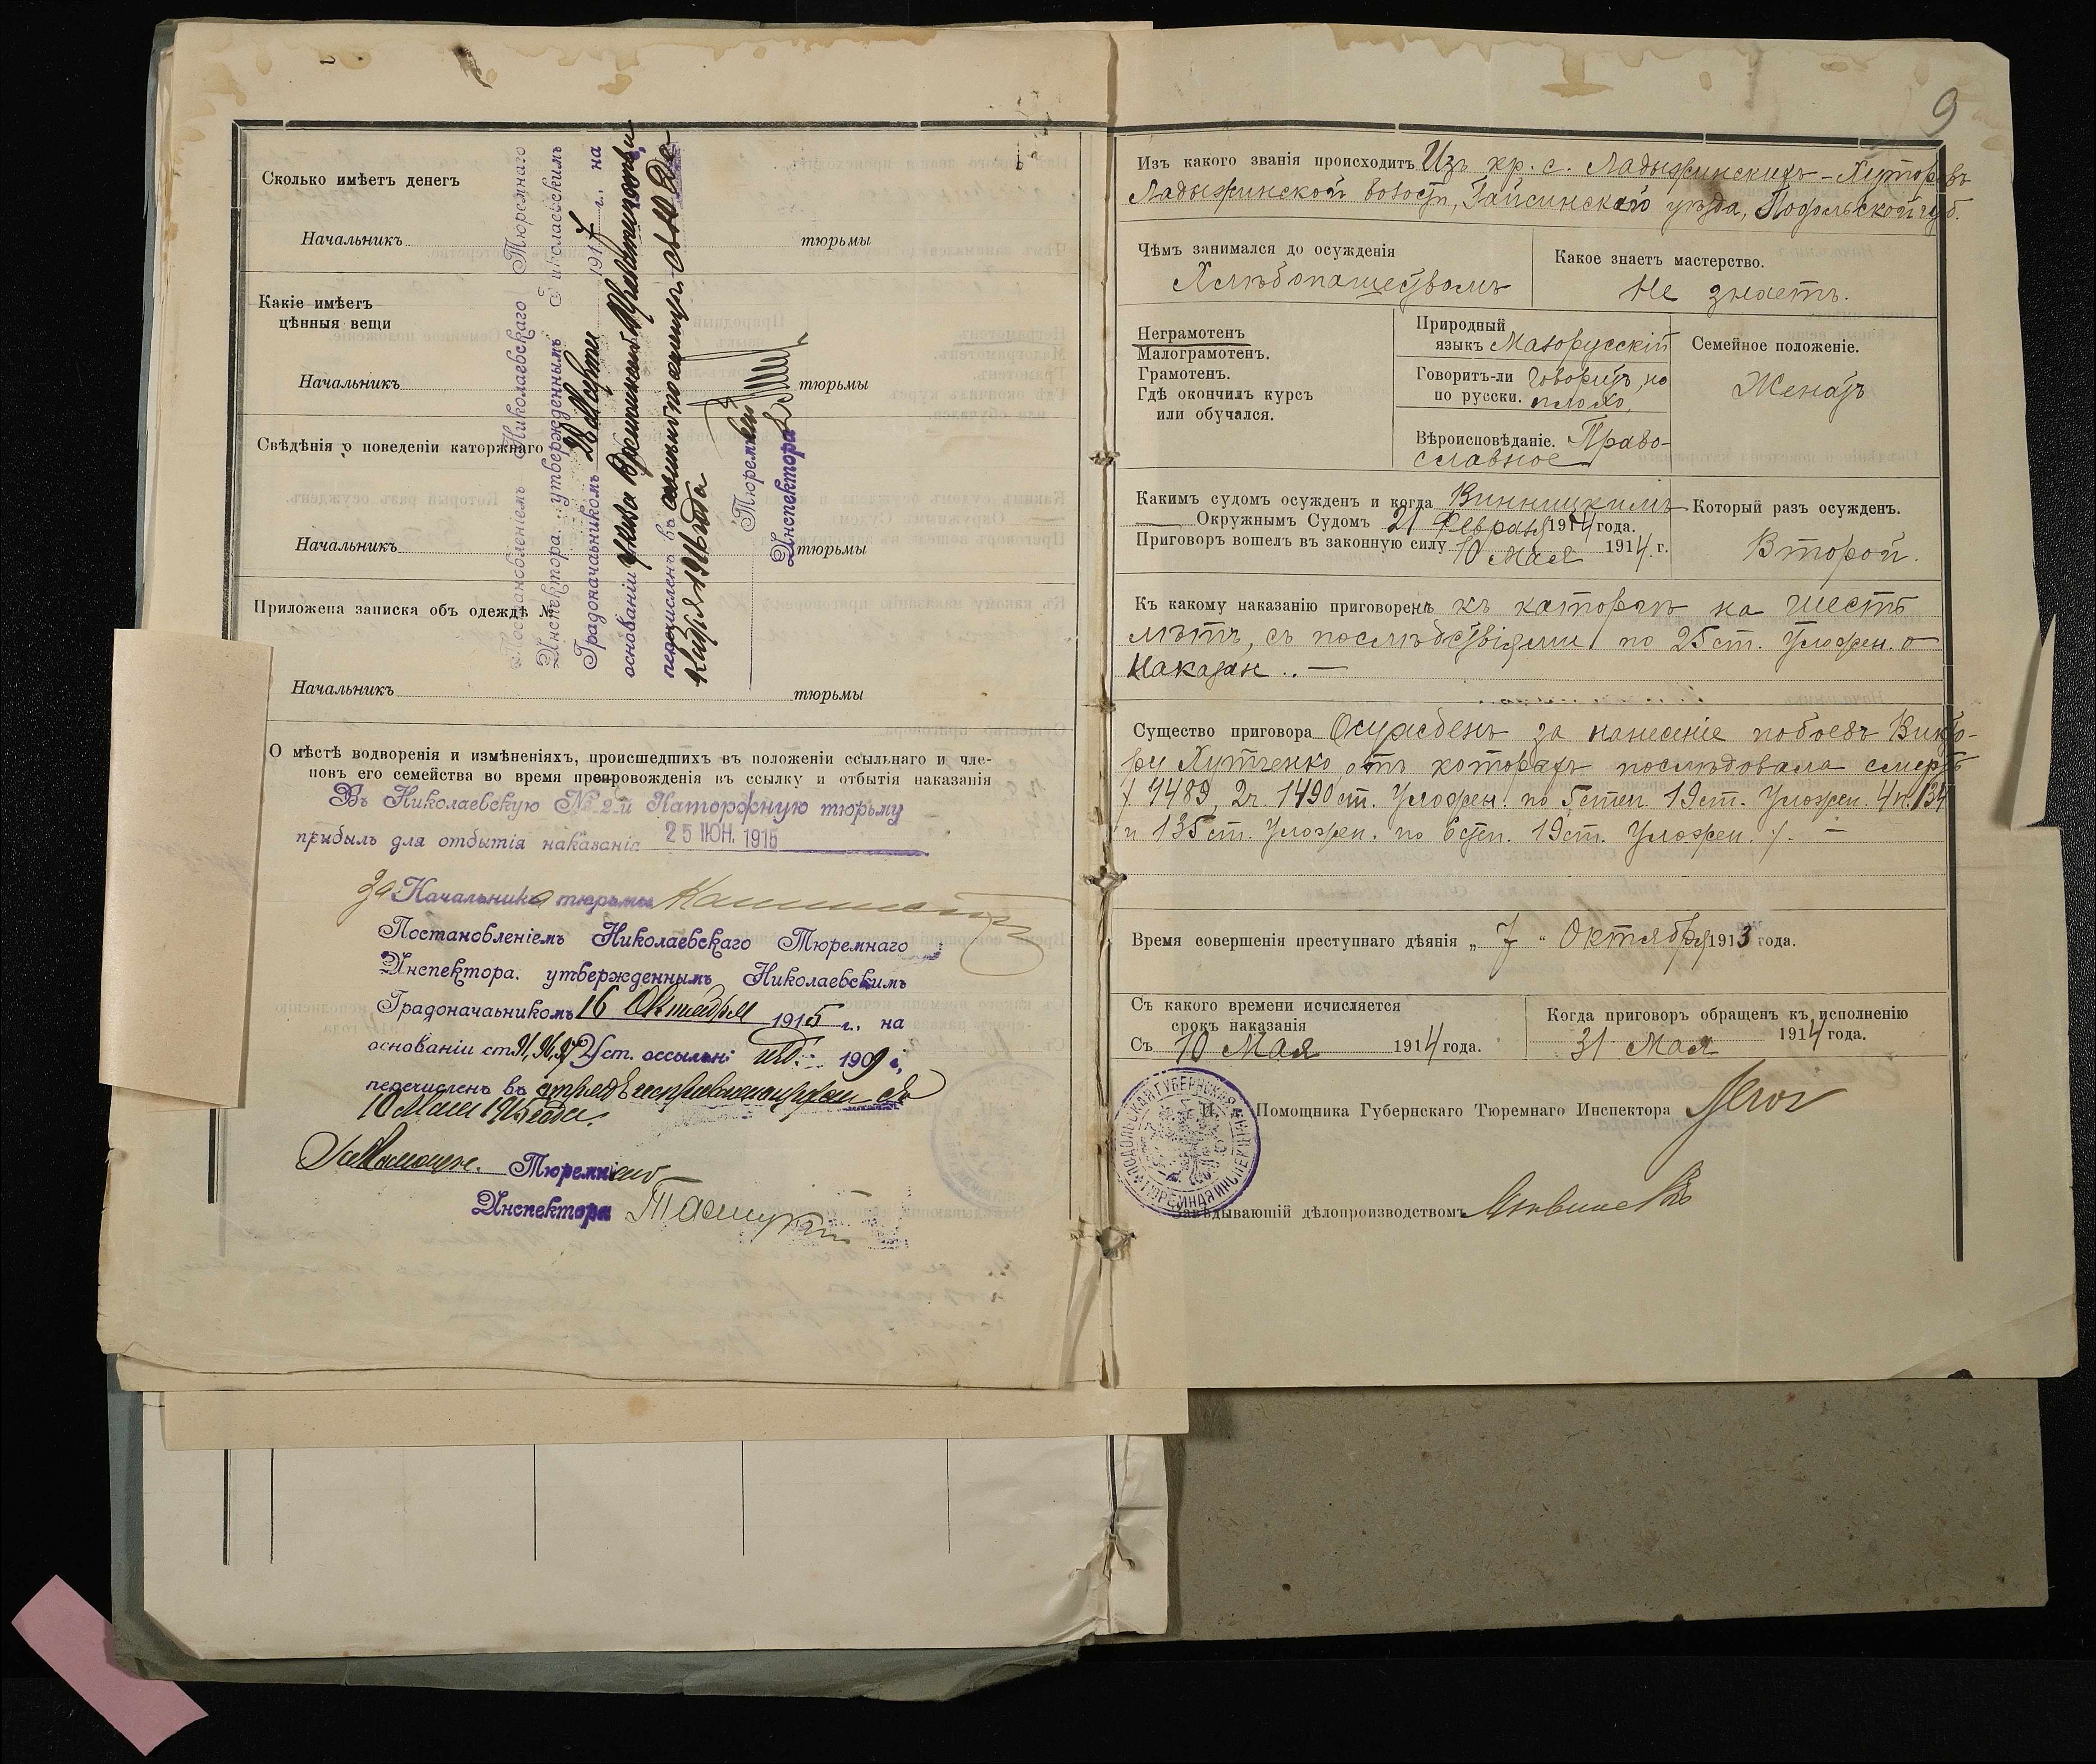 Сколько имѣетъ денегъ
Начальникъ тюрьмы
Какіе имѣетъ
цѣнныя вещи
Начальникъ тюрьмы
Свѣдѣнія о поведеніи каторжнаго
Начальникъ тюрьмы
Приложена записка объ одеждѣ №
Начальникъ тюрьмы
Постановленіемъ Николаевскаго Тюремнаго
Инспектора, утвержденнымъ Николаевскимъ
Градоначальникомъ 28 Марта 1917 г., на
основаніи указа Временнаго Правительства
перечисленъ въ
1916 года
Тюремный
Инспектора
О мѣстѣ водворенія и измѣненіяхъ, происшедшихъ въ положеніи ссыльнаго и чле-
новъ его семейства во время препровожденія въ ссылку и отбытія наказанія
Въ Николаевскую № 2-й Каторжную тюрьму
прибылъ для отбытія наказанія 25 ІЮН. 1915
За Начальника тюрьмы
Постановленіемъ Николаевскаго Тюремнаго
Инспектора, утвержденнымъ Николаевскимъ
Градоначальникомъ 16 Октября 1915 г., на
основаніи ст. Уст. о ссыльн. изд. 1909 г.,
перечисленъ въ отрядъ исправляющихся съ
10 Мая 1915 года.
Тюремнаго
Инспектора
9
Изъ какого званія происходитъ Изъ кр. с. Ладыжинскихъ-Хуторовъ
Ладыжинской волости, Гайсинскаго уѣзда, Подольской губ.
Чѣмъ занимался до осужденія
Хлѣбопашествомъ
Какое знаетъ мастерство.
Не знаетъ.
Неграмотенъ
Малограмотенъ.
Грамотенъ.
Гдѣ окончилъ курсъ
или обучался.
Природный
языкъ Малорусскій
Говоритъ-ли Говоритъ, но
по русски. плохо.
Вѣроисповѣданіе. Право-
славное
Семейное положеніе.
Женатъ
Какимъ судомъ осужденъ и когда Винницкимъ
Окружнымъ Судомъ 21 Февраля 1914 года.
Приговоръ вошелъ въ законную силу 10 Мая 1914 г.
Который разъ осужденъ.
Второй.
Къ какому наказанію приговоренъ къ каторгѣ на шесть
лѣтъ, съ послѣдствіями по 25 ст. Уложен. о
Наказан. . —
Существо приговора Осужденъ за нанесеніе побоевъ Викто-
ру Хутченко, отъ которыхъ послѣдовала смерть
/ 1489, 2ч. 1490 ст. Уложен. по 5 степ. 19 ст. Уложен. 4 п. 134
и 135 ст. Уложен. по 6 степ. 19 ст. Уложен. /. —
Время совершенія преступнаго дѣянія „ 7 “ Октября 1913 года.
Съ какого времени исчисляется
срокъ наказанія
Съ 10 Мая 1914 года.
Когда приговоръ обращенъ къ исполненію
31 Мая 1914 года.
И. Помощника Губернскаго Тюремнаго Инспектора
ПОДОЛЬСКАЯ ГУБЕРНСКАЯ ТЮРЕМНАЯ ИНСПЕКЦІЯ
Завѣдывающій дѣлопроизводствомъ